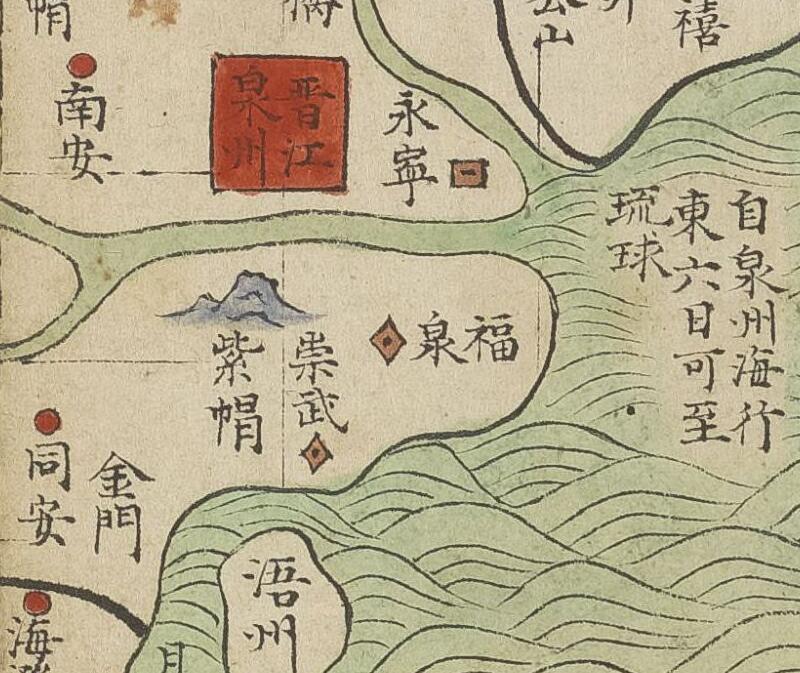 南安
晋江
泉州
永寧
自泉州海行
東六日可至
琉球
福泉
崇武
紫帽
同安
金門
浯州
海
月
帽
禧
山